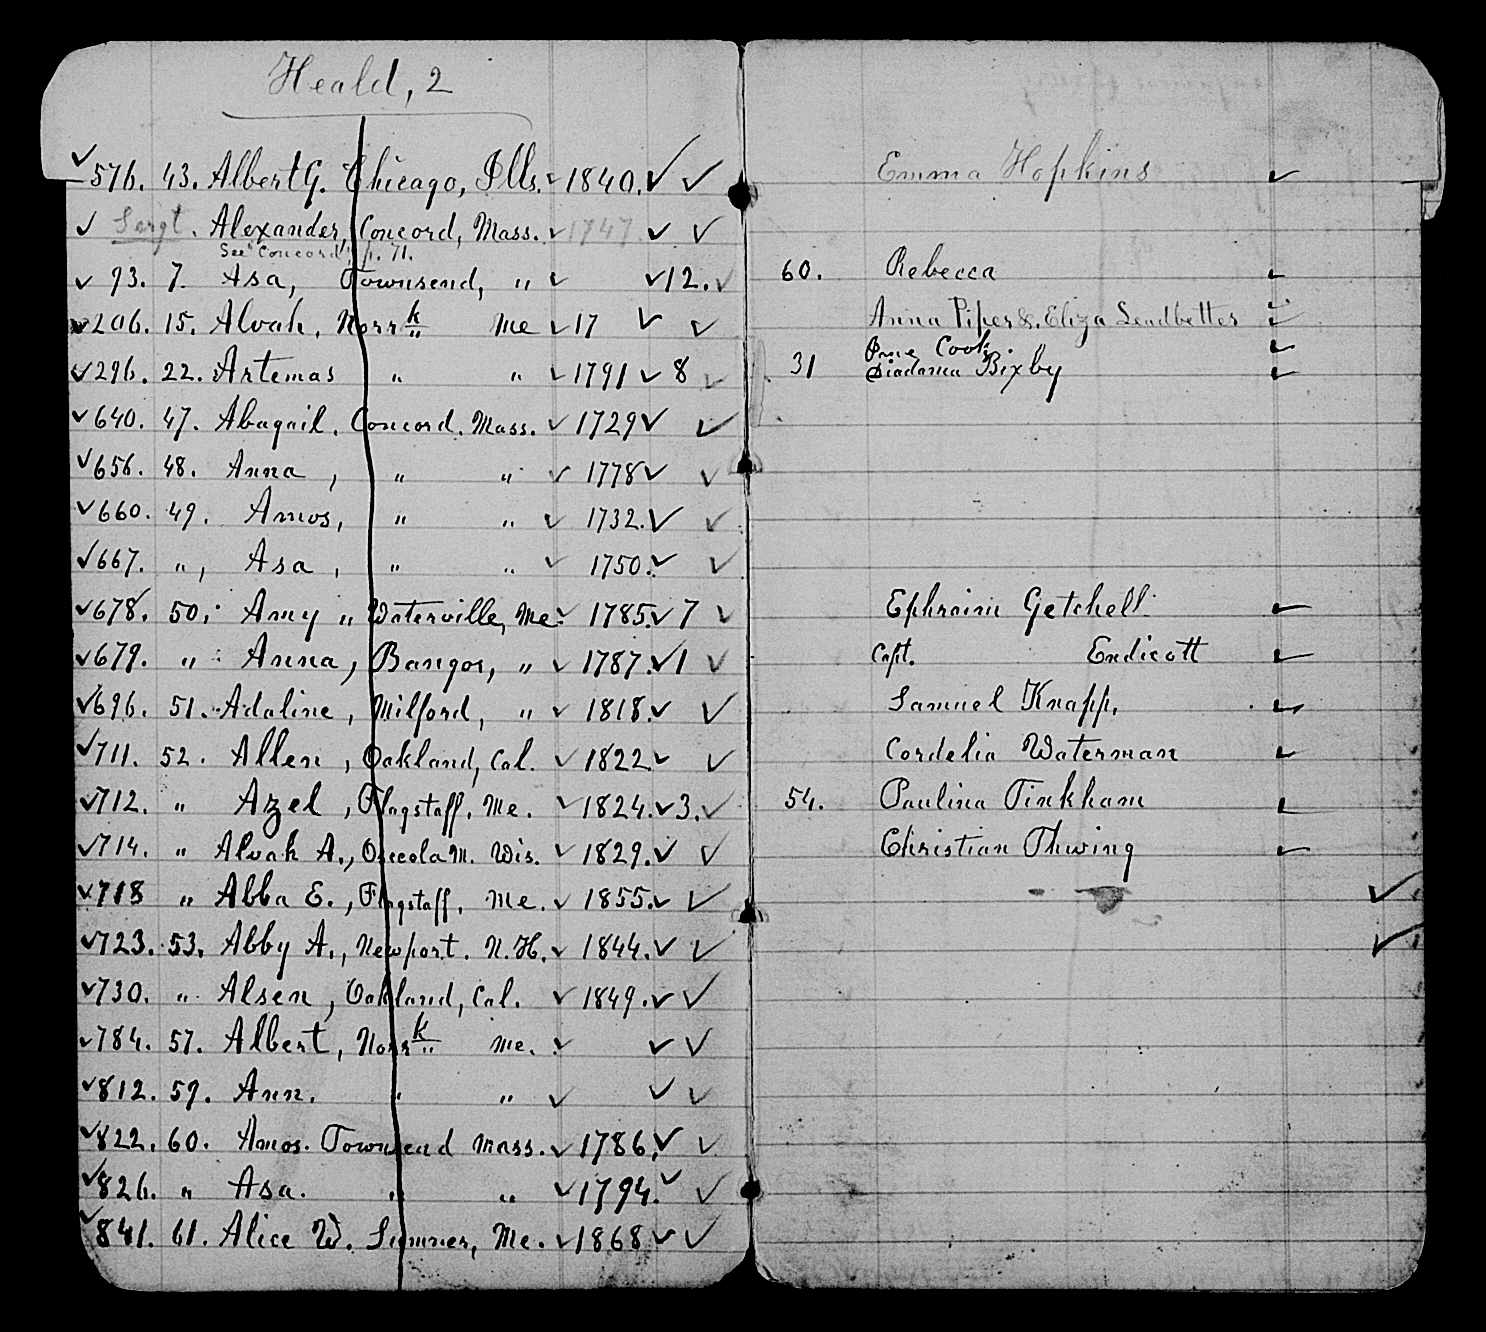 Heald, 2
✓576. 43. Albert G. Chicago, Ills. ✓ 1840. ✓ ✓ Emma Hopkins ✓
✓ Sergt. Alexander, Concord, Mass. ✓ 1747. ✓ ✓
See "Concord", p. 71.
✓ 93. 7. Asa, Townsend, " ✓ ✓ 12. ✓ 60. Rebecca ✓
✓206. 15. Alvah, Norrk " Me ✓ 17 ✓ ✓ Anna Piper &. Eliza Leadbetter ✓
Prue Cook. ✓
✓296. 22. Artemas " " ✓ 1791 ✓ 8 ✓ 31 Diadama Bixby ✓
✓640. 47. Abagail. Concord. Mass. ✓ 1729 ✓ ✓
✓656. 48. Anna, " " ✓ 1778 ✓ ✓
✓660. 49. Amos, " " ✓ 1732. ✓ ✓
✓667. ", Asa, " " ✓ 1750. ✓ ✓
✓678. 50. Amy " Waterville, Me. ✓ 1785. ✓ 7 ✓ Ephraim Getchell ✓
✓679. " Anna, Bangor, " ✓ 1787. ✓ 1 ✓ Capt. Endicott ✓
✓696. 51. Adaline, Milford, " ✓ 1818. ✓ ✓ Samuel Knapp, ✓
✓711. 52. Allen, Oakland, Cal. ✓ 1822. ✓ ✓ Cordelia Waterman ✓
✓712. " Azel, Flagstaff, Me. ✓ 1824. ✓ 3. ✓ 54. Paulina Tinkham ✓
✓714. " Alvah A., Osceola M. Wis. ✓ 1829. ✓ ✓ Christian Thwing ✓
✓718 " Abba E., Flagstaff, Me. ✓ 1855. ✓ ✓ ✓
✓723. 53. Abby A., Newport. N.H. ✓ 1844. ✓ ✓ ✓
✓730. " Alsen, Oakland, Cal. ✓ 1849. ✓ ✓
✓784. 57. Albert, Norrk " Me. ✓ ✓ ✓
✓812. 59. Ann. " " ✓ ✓ ✓
✓822. 60. Amos. Townsend Mass. ✓ 1786, ✓ ✓
✓826. " Asa. " " ✓ 1794. ✓ ✓
✓841. 61. Alice W. Sumner, Me. ✓ 1868 ✓ ✓